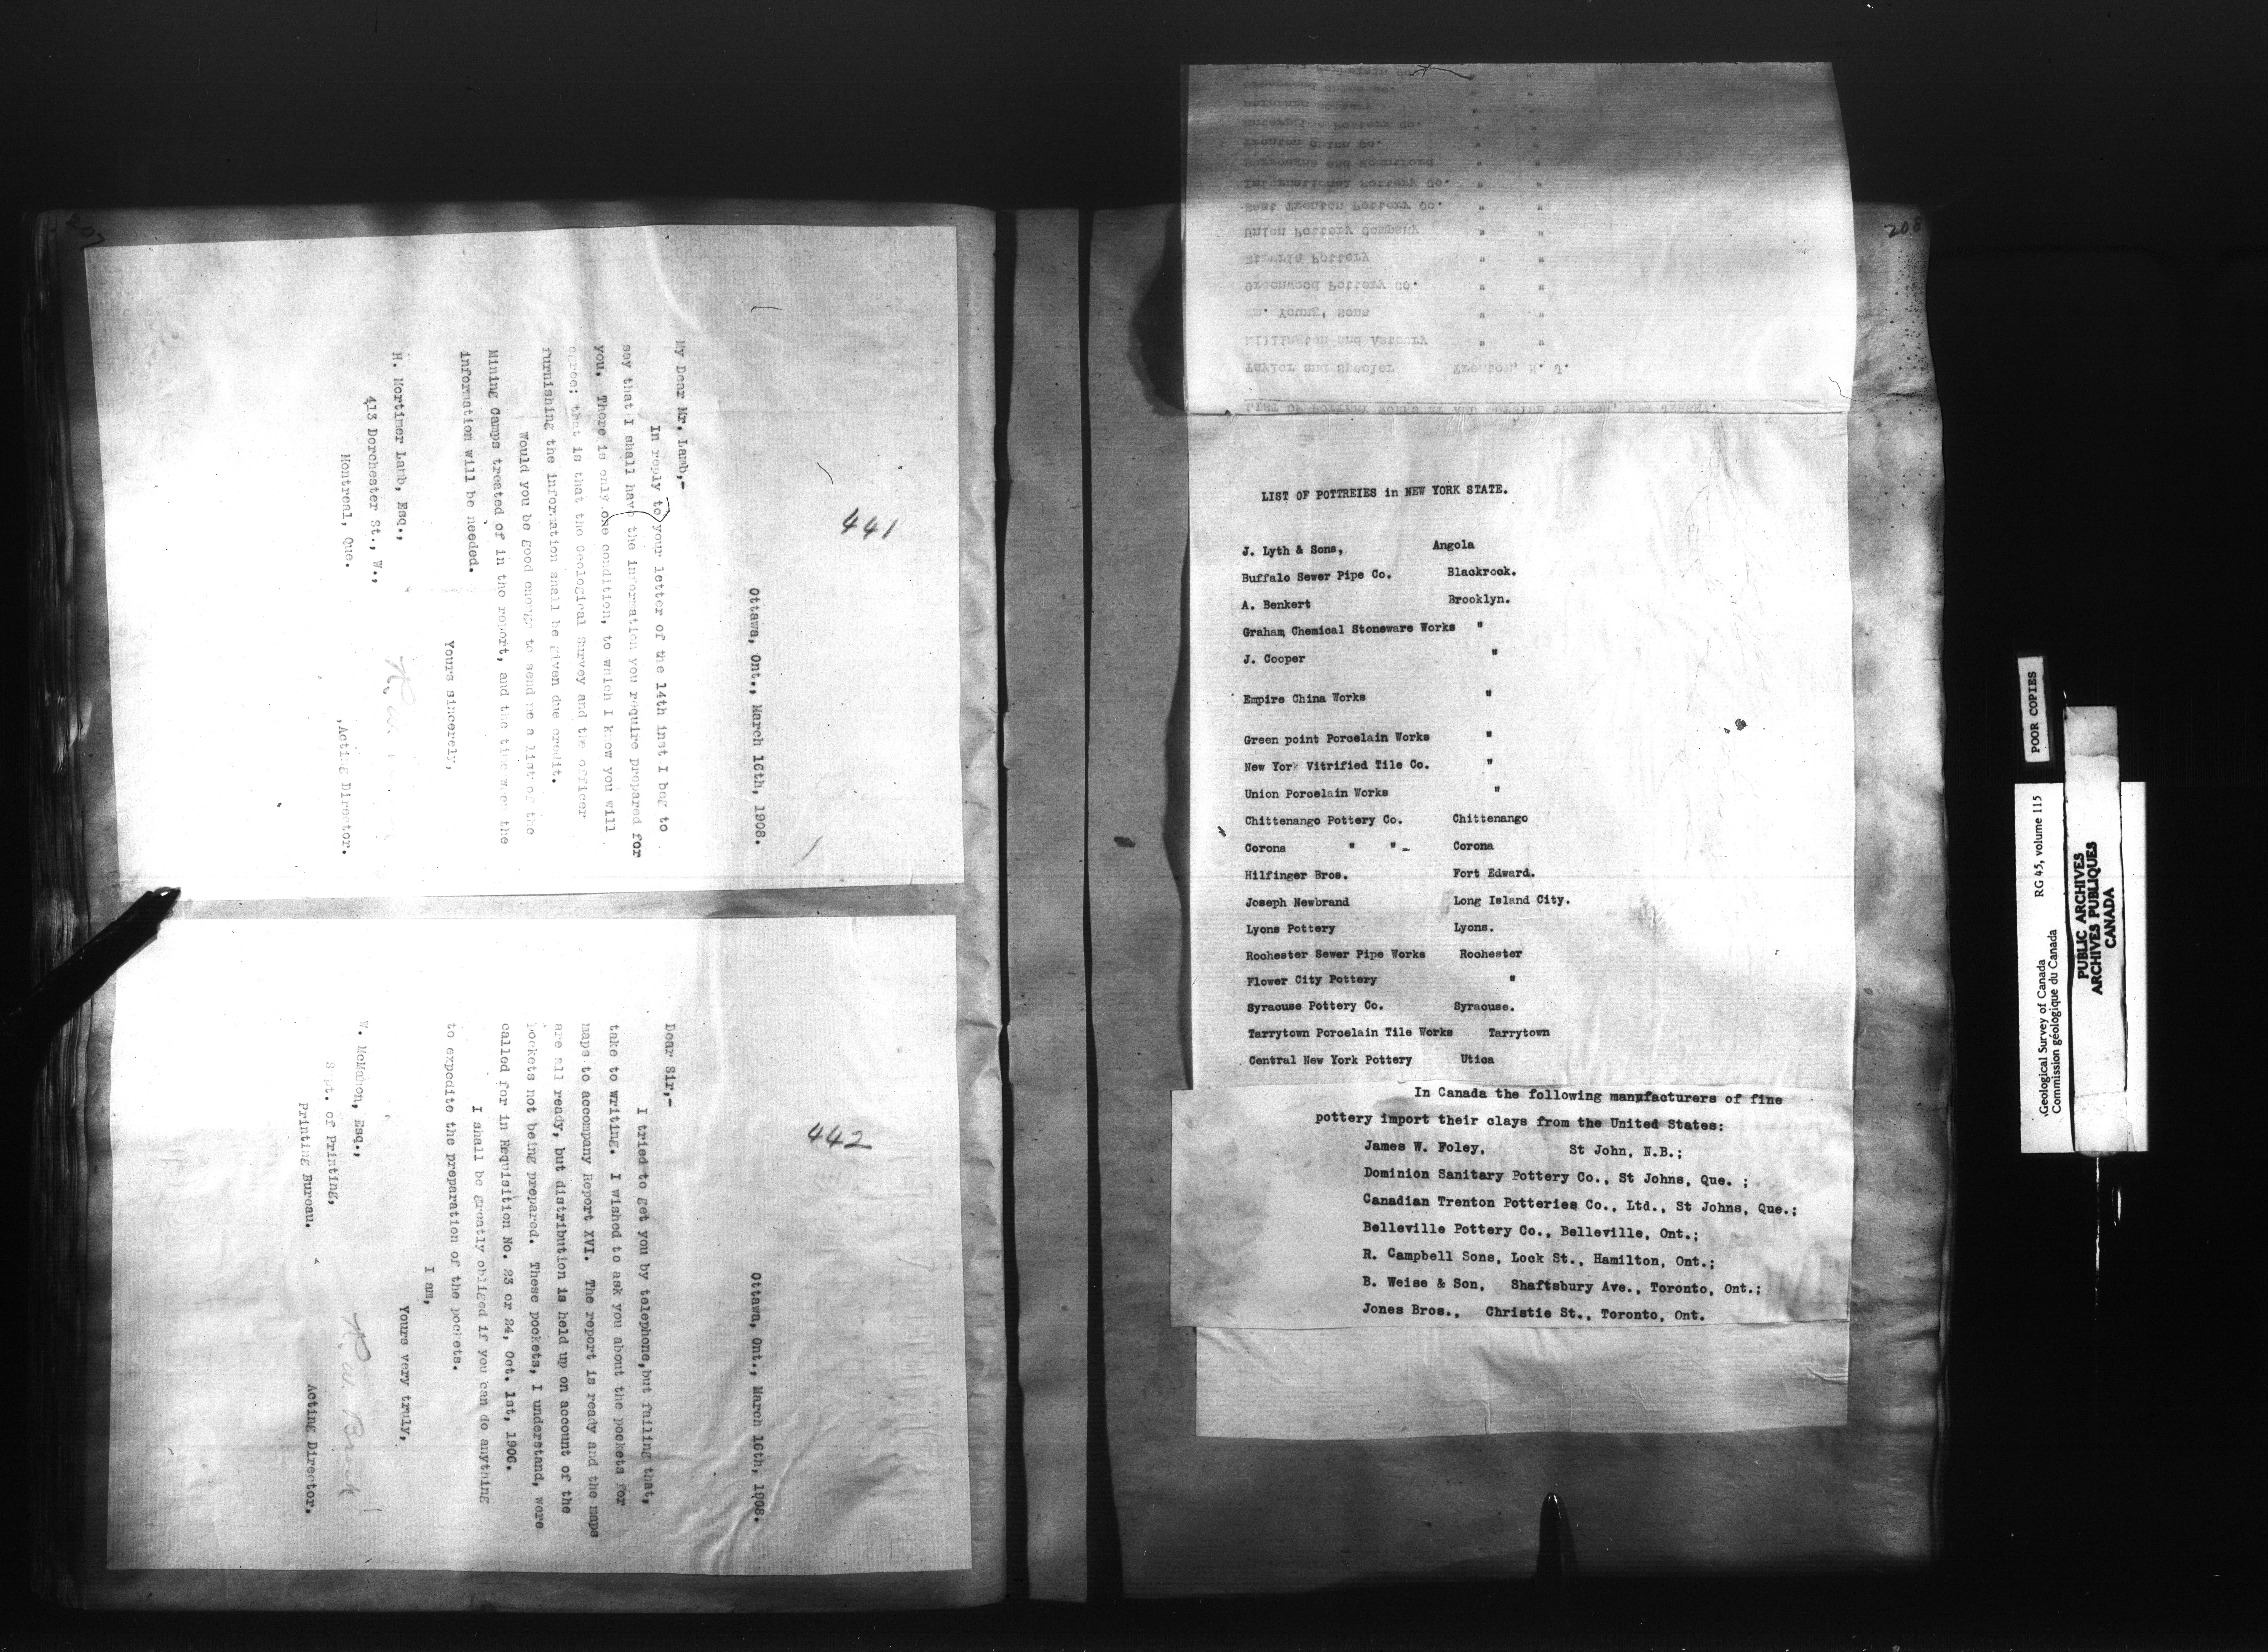 207
441
Ottawa, Ont., March 16th, 1908.
My Dear Mr. Lamb,-
In reply to your letter of the 14th inst I beg to
say that I shall have the information you require prepared for
you. There is only one condition, to which I know you will
agree; that is that the Geological Survey and the officer
furnishing the information shall be given due credit.
Would you be good enough to send me a list of the
Mining Camps treated of in the report, and the time when the
information will be needed.
Yours sincerely,
Acting Director.
H. Mortimer Lamb, Esq.,
413 Dorchester St., W.,
Montreal, Que.
442
Ottawa, Ont., March 16th, 1908.
Dear Sir,-
I tried to get you by telephone, but failing that,
take to writing. I wished to ask you about the pockets for
maps to accompany Report XVI. The report is ready and the maps
are all ready, but distribution is held up on account of the
pockets not being prepared. These pockets, I understand, were
called for in Requisition No. 23 or 24, Oct. 1st, 1906.
I shall be greatly obliged if you can do anything
to expedite the preparation of the pockets.
I am,
Yours very truly,
R. W. Brock
Acting Director.
W. McMahon, Esq.,
Supt. of Printing,
Printing Bureau.
208
LIST OF POTTERY WORKS AT AND OUTSIDE TRENTON, NEW JERSEY.
Taylor and Speeler Trenton, N. J.
Millington and Astbury " "
Wm. Young, Sons " "
Greenwood Pottery Co. " "
Etruria Pottery " "
Union Pottery Company " "
East Trenton Pottery Co. " "
International Pottery Co. " "
Burroughs and Mountford " "
Trenton China Co. " "
Enterprise Pottery Co. " "
" "
Greenwood China Co. " "
Porcelain Co. " "
LIST OF POTTREIES in NEW YORK STATE.
J. Lyth & Sons, Angola
Buffalo Sewer Pipe Co. Blackrock.
A. Benkert Brooklyn.
Graham Chemical Stoneware Works "
J. Cooper "
Empire China Works "
Green point Porcelain Works "
New York Vitrified Tile Co. "
Union Porcelain Works "
Chittenango Pottery Co. Chittenango
Corona " " Corona
Hilfinger Bros. Fort Edward.
Joseph Newbrand Long Island City.
Lyons Pottery Lyons.
Rochester Sewer Pipe Works Rochester
Flower City Pottery "
Syracuse Pottery Co. Syracuse.
Tarrytown Porcelain Tile Works Tarrytown
Central New York Pottery Utica
In Canada the following manufacturers of fine
pottery import their clays from the United States:
James W. Foley, St John, N.B.;
Dominion Sanitary Pottery Co., St Johns, Que. ;
Canadian Trenton Potteries Co., Ltd., St Johns, Que.;
Belleville Pottery Co., Belleville, Ont.;
R. Campbell Sons, Lock St., Hamilton, Ont.;
B. Weise & Son, Shaftsbury Ave., Toronto, Ont.;
Jones Bros., Christie St., Toronto, Ont.
POOR COPIES
Geological Survey of Canada RG 45, volume 115
Commission géologique du Canada
PUBLIC ARCHIVES
ARCHIVES PUBLIQUES
CANADA